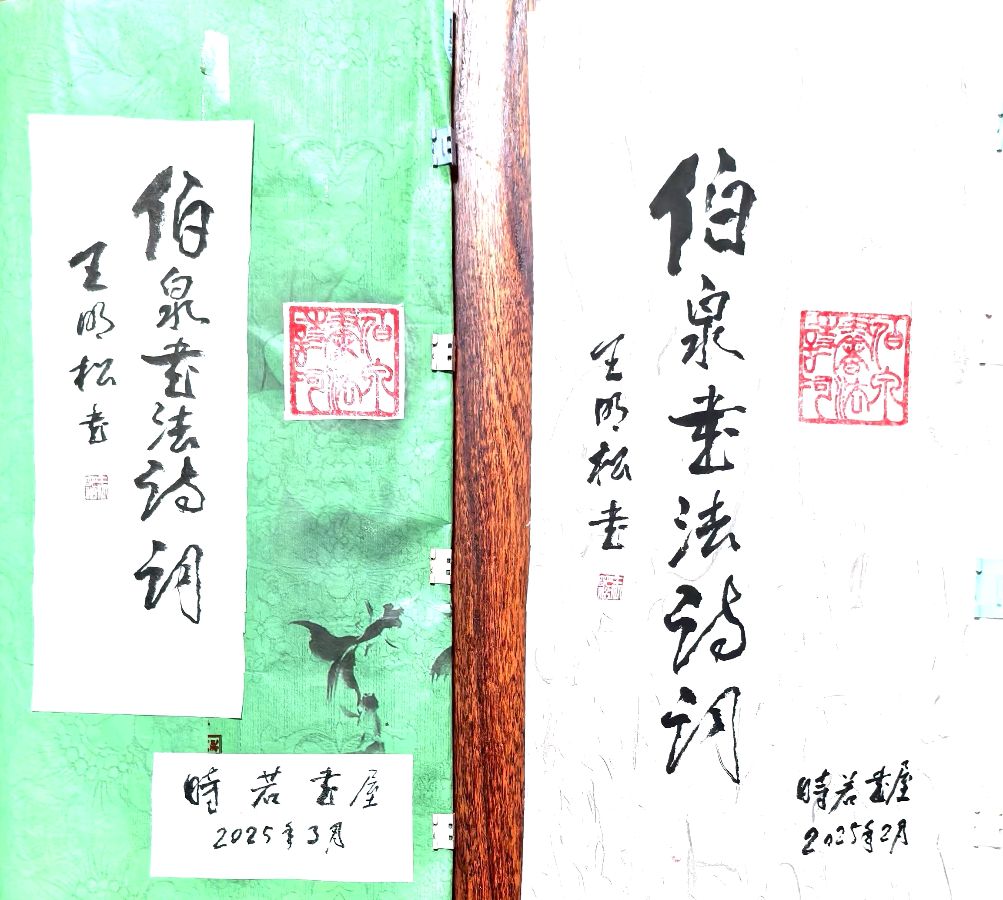 伯泉書法詩词
王明松書
伯泉
書法
詩词
時若書屋
2025年3月
伯泉書法詩词
王明松書
伯泉
書法
詩词
時若書屋
2025年2月